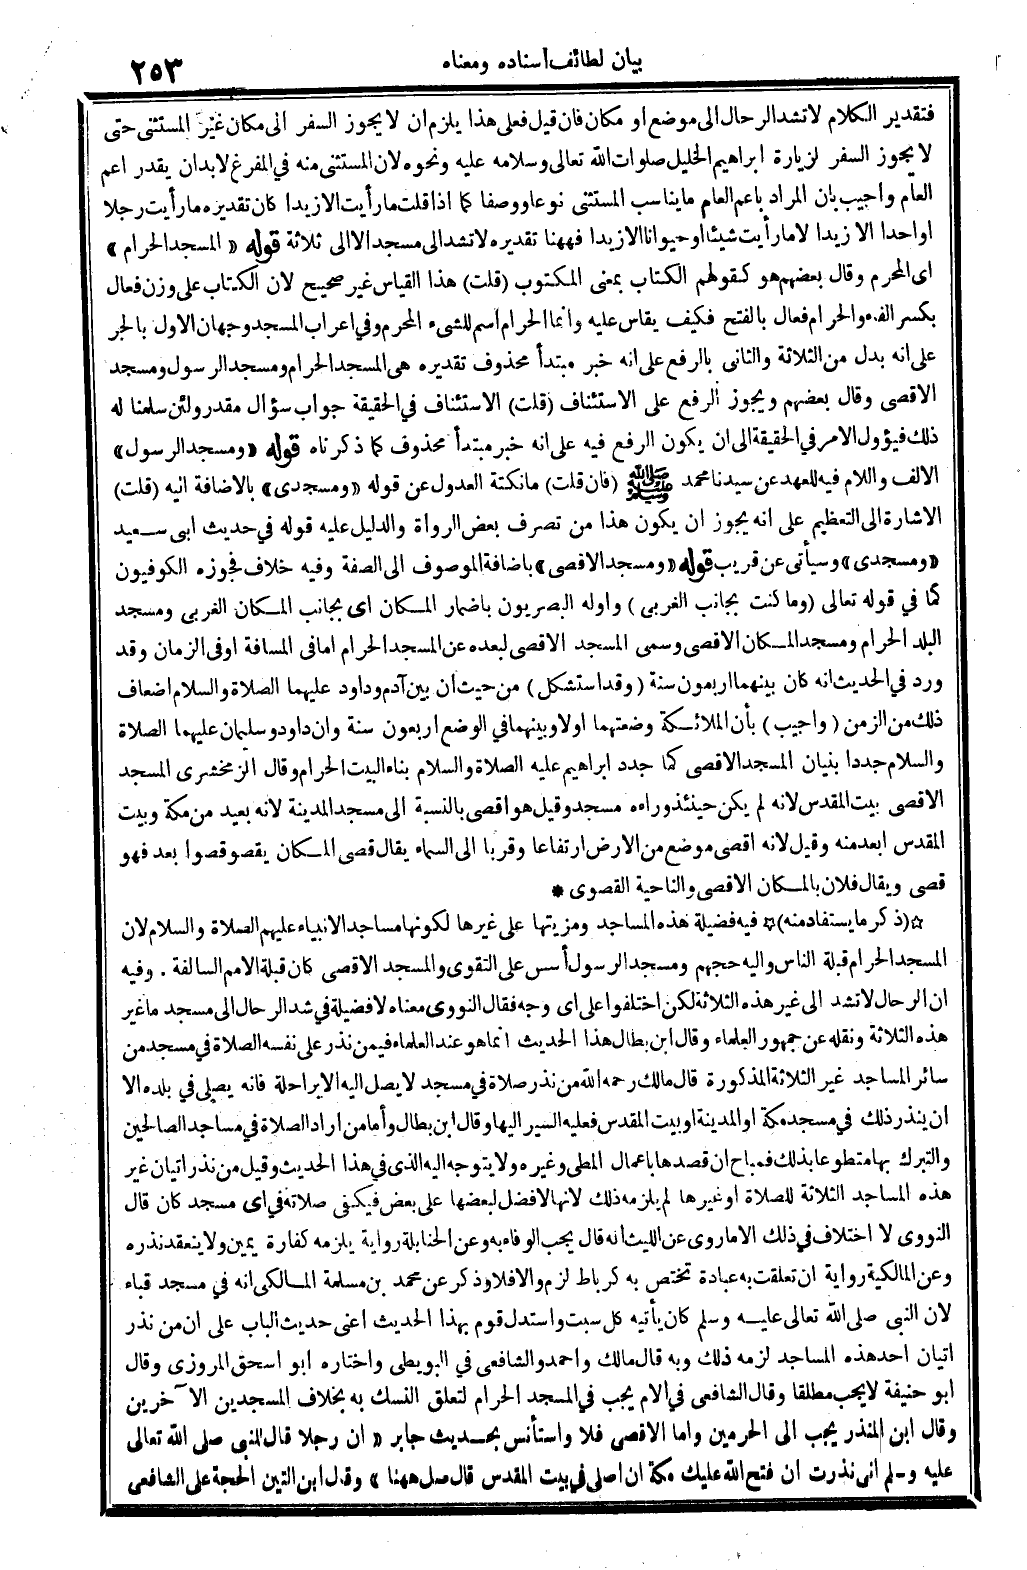 بيان لطائف أسناده ومعناه
٢٥٣
فتقدير الكلام لا تشد الرحال الى موضع او مكان فان قيل فعلى هذا يلزم ان لا يجوز السفر الى مكان غير المستثنى حتى
لا يجوز السفر لزيارة ابراهيم الخليل صلوات الله تعالى وسلامه عليه ونحوه لان المستثنى منه في المفرغ لابد ان يقدر اعم
العام واجيب بان المراد باعم العام ما يناسب المستثنى نوعا ووصفا كما اذا قلت ما رأيت الا زيدا كان تقديره ما رأيت رجلا
او احدا الا زيدا لا ما رأيت شيئا او حيوانا الا زيدا فههنا تقديره لا تشد الى مسجد الا الى ثلاثة قوله « المسجد الحرام »
اى المحرم وقال بعضهم هو كقولهم الكتاب بمعنى المكتوب (قلت) هذا القياس غير صحيح لان الكتاب على وزن فعال
بكسر الفاء والحرام فعال بالفتح فكيف يقاس عليه وانما الحرام اسم للشىء المحرم وفي اعراب المسجد وجهان الاول بالجر
على انه بدل من الثلاثة والثانى بالرفع على انه خبر مبتدأ محذوف تقديره هى المسجد الحرام ومسجد الرسول ومسجد
الاقصى وقال بعضهم ويجوز الرفع على الاستئناف (قلت) الاستئناف في الحقيقة جواب سؤال مقدر ولئن سلمنا له
ذلك فيؤول الامر في الحقيقة الى ان يكون الرفع فيه على انه خبر مبتدأ محذوف كما ذكرناه قوله «ومسجد الرسول»
الالف واللام فيه للعهد عن سيدنا محمد ﷺ (فان قلت) ما نكتة العدول عن قوله «ومسجدى» بالاضافة اليه (قلت)
الاشارة الى التعظيم على انه يجوز ان يكون هذا من تصرف بعض الرواة والدليل عليه قوله في حديث ابى سعيد
«ومسجدى» وسيأتى عن قريب قوله «ومسجد الاقصى» باضافة الموصوف الى الصفة وفيه خلاف فجوزه الكوفيون
كما في قوله تعالى (وما كنت بجانب الغربى ) واوله البصريون باضمار المكان اى بجانب المكان الغربى ومسجد
البلد الحرام ومسجد المكان الاقصى وسمى المسجد الاقصى لبعده عن المسجد الحرام اما في المسافة او في الزمان وقد
ورد في الحديث انه كان بينهما اربعون سنة ( وقد استشكل ) من حيث ان بين آدم وداود عليهما الصلاة والسلام اضعاف
ذلك من الزمن ( واجيب ) بأن الملائكة وضعتهما اولا وبينهما في الوضع اربعون سنة وان داود وسليمان عليهما الصلاة
والسلام جددا بنيان المسجد الاقصى كما جدد ابراهيم عليه الصلاة والسلام بناء البيت الحرام وقال الزمخشرى المسجد
الاقصى بيت المقدس لانه لم يكن حينئذ وراءه مسجد وقيل هو اقصى بالنسبة الى مسجد المدينة لانه بعيد من مكة وبيت
المقدس ابعد منه وقيل لانه اقصى موضع من الارض ارتفاعا وقربا الى السماء يقال قصى المكان يقصو قصوا بعد فهو
قصى ويقال فلان بالمكان الاقصى والناحية القصوى *
☆(ذكر ما يستفاد منه)☆ فيه فضيلة هذه المساجد ومزيتها على غيرها لكونها مساجد الانبياء عليهم الصلاة والسلام لان
المسجد الحرام قبلة الناس واليه حجهم ومسجد الرسول أسس على التقوى والمسجد الاقصى كان قبلة الامم السالفة . وفيه
ان الرحال لا تشد الى غير هذه الثلاثة لكن اختلفوا على اى وجه فقال النووى معناه لا فضيلة في شد الرحال الى مسجد ما غير
هذه الثلاثة ونقله عن جمهور العلماء وقال ابن بطال هذا الحديث انما هو عند العلماء فيمن نذر على نفسه الصلاة في مسجد من
سائر المساجد غير الثلاثة المذكورة قال مالك رحمه الله من نذر صلاة في مسجد لا يصل اليه الا براحلة فانه يصلى في بلده الا
ان ينذر ذلك في مسجد مكة او المدينة او بيت المقدس فعليه السير اليها وقال ابن بطال وأما من اراد الصلاة في مساجد الصالحين
والتبرك بها متطوعا بذلك فمباح ان قصدها باعمال المطى وغيره ولا يتوجه اليه الذى في هذا الحديث وقيل من نذر اتيان غير
هذه المساجد الثلاثة للصلاة او غيرها لم يلزمه ذلك لانها لا فضل لبعضها على بعض فيكفى صلاته في اى مسجد كان قال
النووى لا اختلاف في ذلك الا ما روى عن الليث انه قال يجب الوفاء به وعن الحنابلة رواية يلزمه كفارة يمين ولا ينعقد نذره
وعن المالكية رواية ان تعلقت به عبادة تختص به كرباط لزم والا فلا وذكر عن محمد بن مسلمة المالكى انه في مسجد قباء
لان النبى صلى الله تعالى عليه وسلم كان يأتيه كل سبت واستدل قوم بهذا الحديث اعنى حديث الباب على ان من نذر
اتيان احد هذه المساجد لزمه ذلك وبه قال مالك واحمد والشافعى في البويطى واختاره ابو اسحق المروزى وقال
ابو حنيفة لا يجب مطلقا وقال الشافعى في الام يجب في المسجد الحرام لتعلق النسك به بخلاف المسجدين الآخرين
وقال ابن المنذر يجب الى الحرمين واما الاقصى فلا واستأنس بحديث جابر « ان رجلا قال للنبى صلى الله تعالى
عليه وسلم انى نذرت ان فتح الله عليك مكة ان اصلى في بيت المقدس قال صل ههنا » وقال ابن التين الحجة على الشافعى